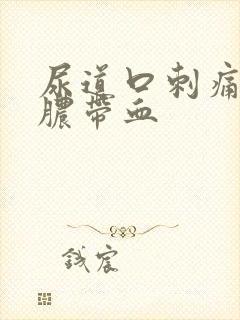 尿道口刺痛
膿帶血
錢宸